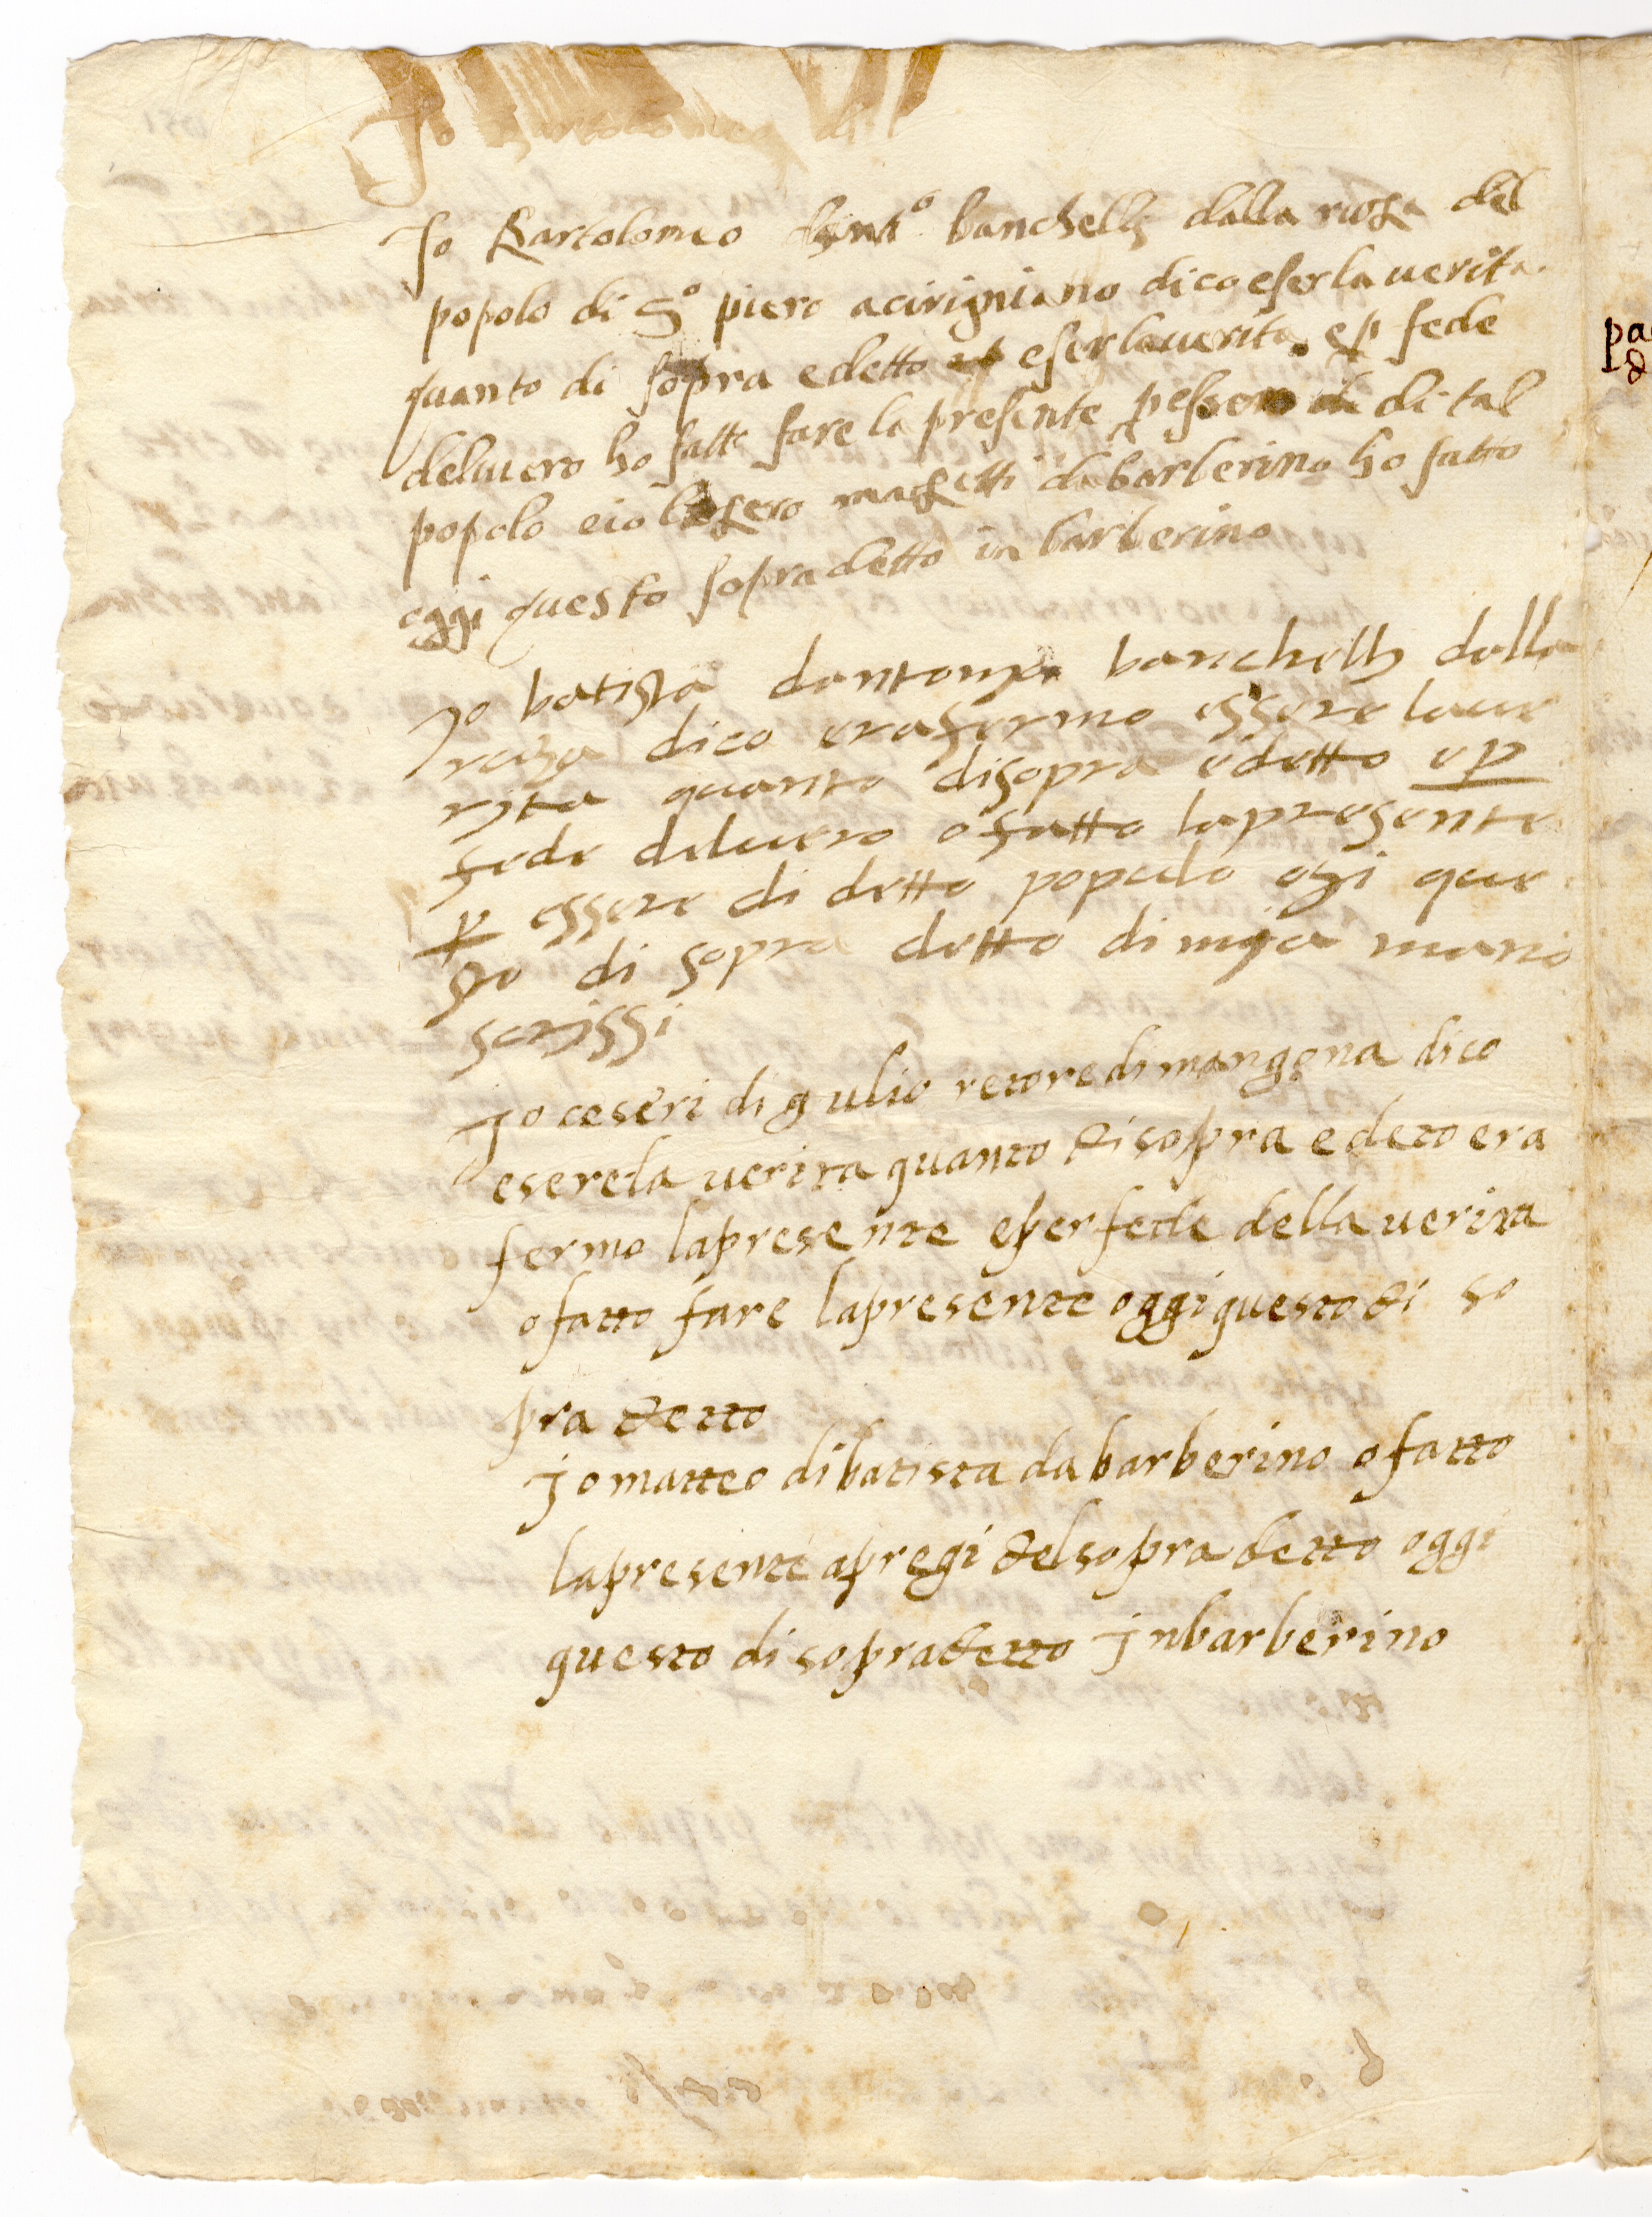 Io Bartolomeo
Io Bartolomeo d'ant.º banchelli dalla ruoza del
popolo di Sº piero acirigniano dico eser la uerita
quanto di sopra e detto eser la uerita e p fede
deluero ho fatto fare la presente p di tal
popolo e io da barberino ho fatto
oggi questo sopra detto in barberino
Jo batista dantonyo banchelli dalla
roza dico erafermo essere laue
ryta quanto disopra e detto e p
fede deluero o fatto lapresente
p essere di detto populo ogi que
sto di sopra detto di mya mano
scrissi
Jo ceseri di gulio retore di mangona dico
eserela uerita quanto disopra e detto era
fermo lapresente eper fede della uerita
o fatto fare lapresente oggi questo di so
pra detto
Jo matteo di batista da barberino o fatto
lapresente apregi del sopra detto oggi
questo di sopradetto Jnbarberino
pa